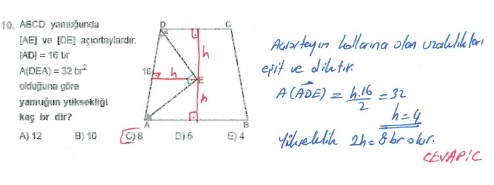 10. ABCD yamuğunda
[AE] ve [DE] açıortaylardır.
|AD| = 16 br
A(DEA) = 32 br²
olduğuna göre
yamuğun yüksekliği
kaç br dir?
A) 12 B) 10 C) 8 D) 6 E) 4
D C
h
16 h E
h
A B
Açıortayın kollarına olan uzaklıkları
eşit ve diktir.
A(ADE) = h.16/2 = 32
h=4
Yükseklik 2h=8 br olur.
CEVAP C